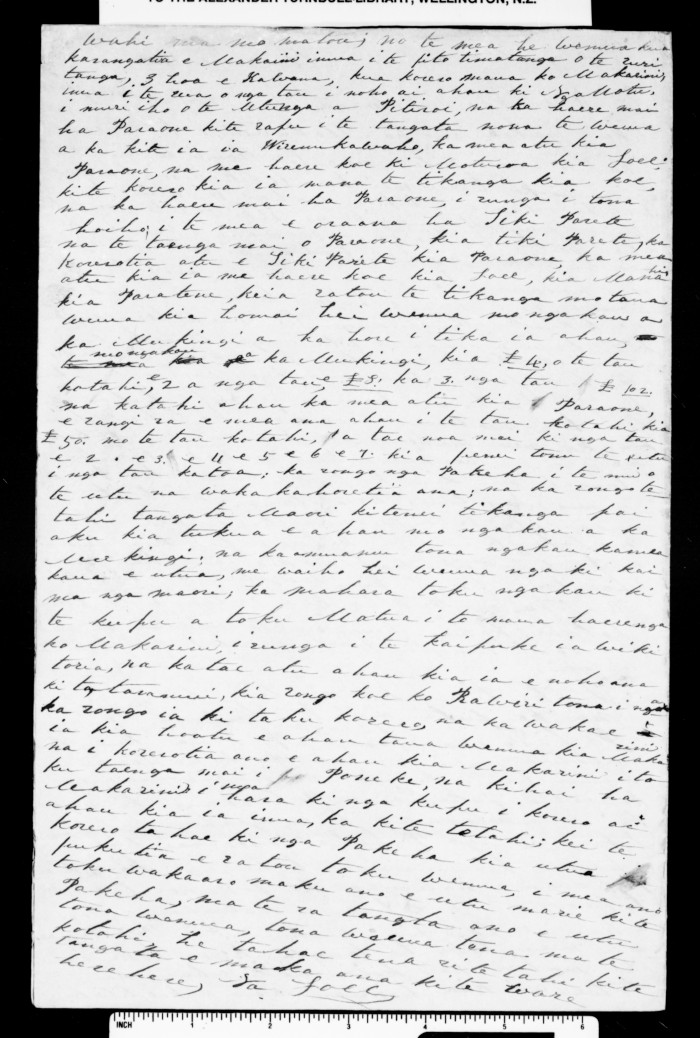 TO THE ALEXANDER TURNBULL LIBRARY, WELLINGTON, N.Z.
wahi mo matou; no te mea he wenua kua
karangatia e Makarini inua i te pito timatanga o te ruri
tanga, 3 hoa e Halvana, kua korero mana ko Makarini
inua i te rua o nga tau i noho ai ahau ki Nga Motu,
i muri iho o te Utunga a Pitiroi, na ka haere mai
ha Paraone kite rapu i te tangata nona te wenua
a ka kite ia ia Wiremu kawaho, ka mea atu kia
Paraone, na me haere koe ki Moturoa kia Poll;
kite korero kia ia mana te tikanga kia koe,
na ka haere mai ha Paraone, i runga i tona
hoiho, i te mea e oraana ha Tiki Parete
na te taenga mai o Paraone, kia tiki Parete, ka
korerotia atu e Tiki Parete kia Paraone ka mea
atu kia ia me haere koe kia Poll, kia Manahi
kia Paratene, keia ratou te tikanga mo tana
wenua kia homai hei wenua mo nga kau a
ka Mukingi a ka hore i tika ia ahau,
mo nga kau
a ka Mukingi, kia £ o te tau
kotahi, e 2 a nga tau, £ ka 3. nga tau £ 102.
na katahi ahau ka mea atu kia Paraone,
e rangi ra e mea ana ahau i te tau kotahi kia
£50. mo te tau kotahi, a tae noa mai ki nga tau
e 2. e 3. e 4 e 5 e 6 e 7. kia penei tonu te utu
i nga tau katoa; ka rongo nga Pakeha i te nui o
te utu na waka kahoretia ana; na ka rongo te
tahi tangata Maori kitenei tikanga pai
aku kia tukua e ahau mo nga kau a ka
Mukingi; na ka amuamu tona ngakau kamea
kaua e utua, me waiho hei wenua nga ki kai
ma nga maori; ka mahara toku nga kau ki
te kupu a toku Matua i to maua haerenga
ko Makarini, i runga i te kaipuke ia wiki
toria, na ka tae atu ahau kia ia e noho ana
ki Taranaui, kia rongo koe ko Rawiri tona ingoa
ka rongo ia ki taku korero, na ka wakae
ia kia hoatu e ahau tana wenua kia Makarini
na i korerotia ano e ahau kia Makarini i to
ku taenga mai i Poneke, na kihai ha
Makarini i hara ki nga kupu i korero ai
ahau kia ia inua, ka kite tetahi; kei te
korero ta hae ki nga Pakeha kia utua
pukutia e ratou toku wenua, i mea ano
toku wakaaro maku ano e utu marie kite
Pakeha, ma te ra tangata ano e utu
tona wenua, tona wenua tona mate
kotahi he tahae tena rite tahi kite
tangata e maka ana kite ware
here here, Na Poll
INCH 1 2 3 4 5 6